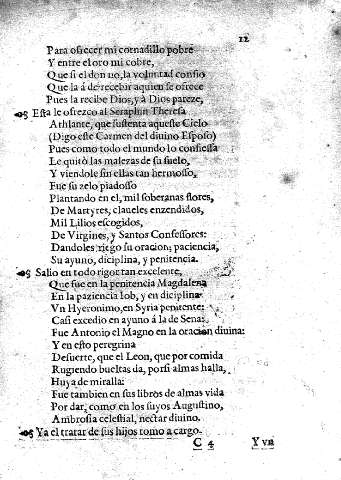 12
Para ofrecer mi cornadillo pobre
Y entre el oro mi cobre,
Que si el don no, la voluntad confio
Que la á de recebir aquien se ofrece
Pues la recibe Dios, y à Dios pareze,
Esta le ofrezco al Seraphin Theresa
Athlante, que sustenta aqueste Cielo
(Digo este Carmen del diuino Esposo)
Pues como todo el mundo lo confiessa
Le quitò las malezas de su suelo,
Y viendole sin ellas tan hermoso,
Fue su zelo piadosso
Plantando en el, mil soberanas flores,
De Martyres, claueles enzendidos,
Mil Lilios escogidos,
De Virgines, y Santos Confessores:
Dandoles riego su oracion, paciencia,
Su ayuno, diciplina, y penitencia.
Salio en todo rigor tan excelente,
Que fue en la penitencia Magdalena
En la paziencia Iob, y en diciplina
Vn Hyeronimo, en Syria penitente:
Casi excedio en ayuno á la de Sena:
Fue Antonio el Magno en la oracion diuina:
Y en esto peregrina
Desuerte, que el Leon, que por comida
Rugiendo bueltas da, por si almas halla,
Huya de miralla:
Fue tambien en sus libros de almas vida
Por dar, como en los suyos Augustino,
Ambrosia celestial, nectar diuino.
Ya el tratar de sus hijos tomo a cargo
C 4 Y vn